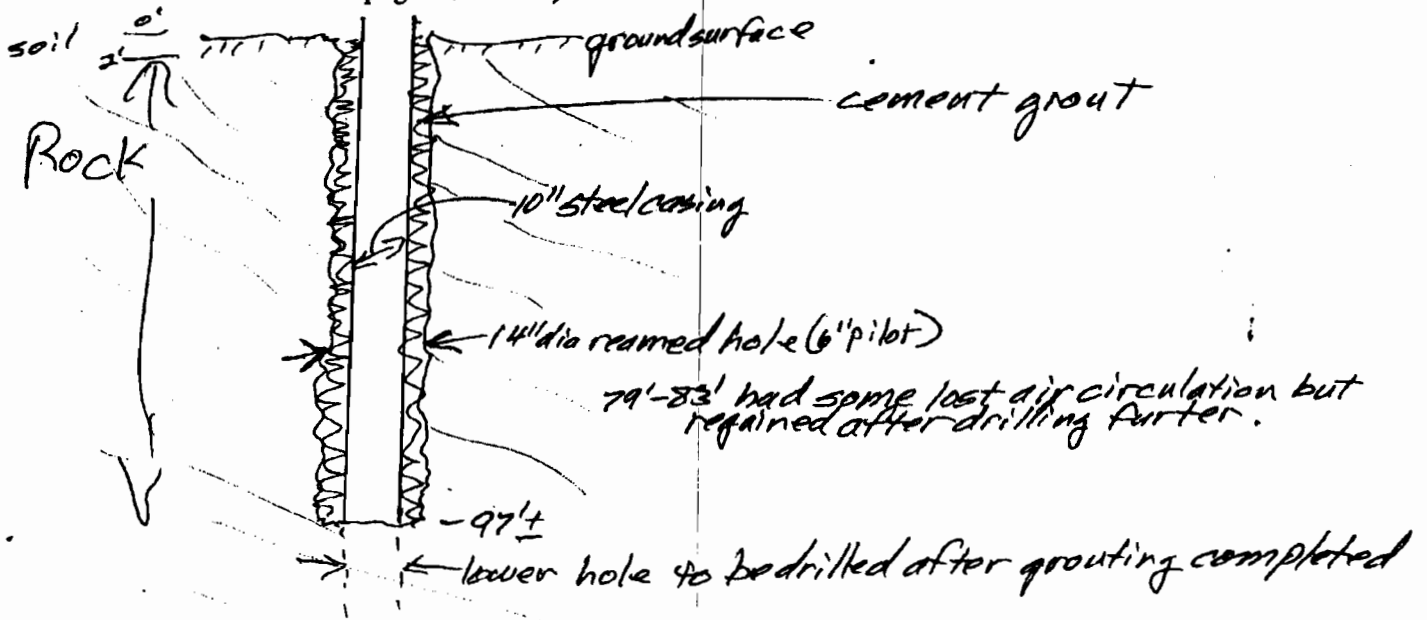 0'
soil
2'
ground surface
cement grout
Rock
10" steel casing
14" dia reamed hole (6" pilot)
79'-83' had some lost air circulation but
regained after drilling furter.
-97'±
lower hole to be drilled after grouting completed